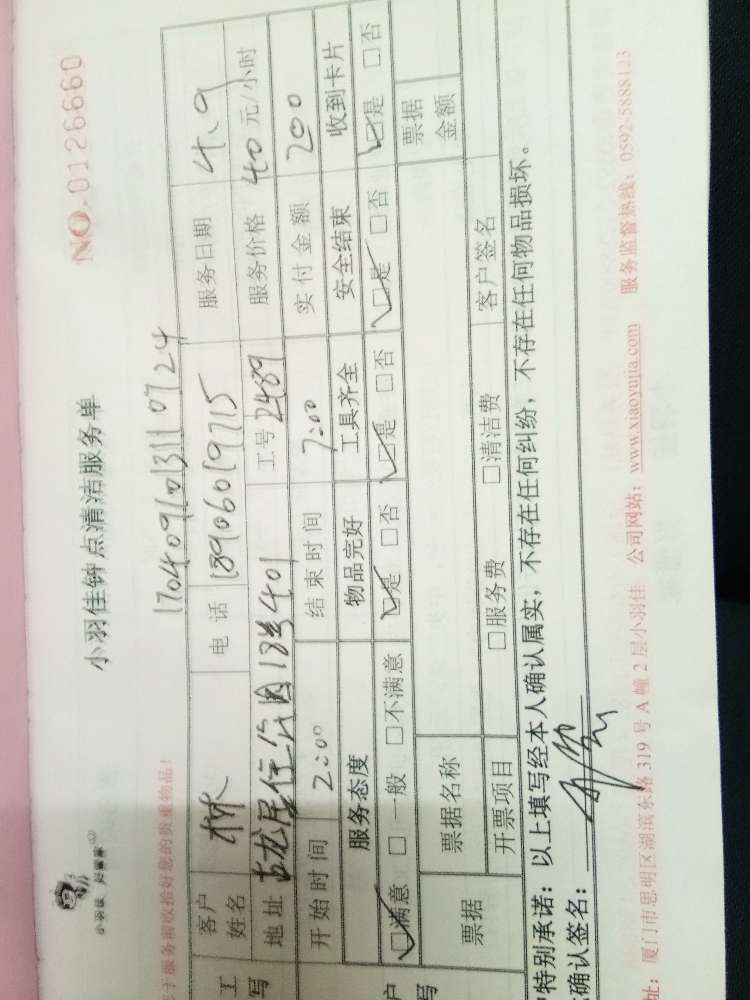 小羽佳钟点清洁服务单
NO.0126660
于服务前收拾好您的贵重物品!
1704091013110724
客户姓名 林 电话 18906019715 服务日期 4.9
地址 古龙居住公园18号401 工号 2489 服务价格 40元/小时
开始时间 2:00 结束时间 7:00 实付金额 200
服务态度 物品完好 工具齐全 安全结束 收到卡片
☑满意 □一般 □不满意 ☑是 □否 ☑是 □否 ☑是 □否 ☑是 □否
票据 票据名称 票据金额
开票项目 □服务费 □清洁费 客户签名
特别承诺:以上填写经本人确认属实,不存在任何纠纷,不存在任何物品损坏。
确认签名:
址:厦门市思明区湖滨东路319号A幢2层小羽佳 公司网站:www.xiaoyujia.com 服务监督热线:0592-5888123